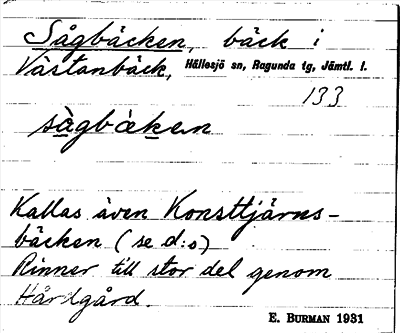 Sågbäcken, bäck i
Västanbäck, Hällesjö sn, Ragunda tg, Jämtl. l.
133
sàgbàken
Kallas även Konsttjärns-
bäcken (se d:o)
Rinner till stor del genom
Hårdgård.
E. BURMAN 1931